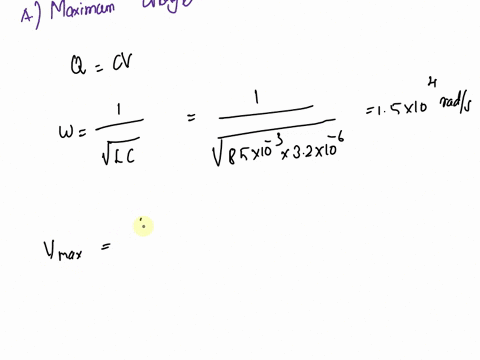 A) Maximum
Q = CV
W = 1/√LC = 1/√85×10⁻³×3.2×10⁻⁶ = 1.5×10⁴ rad/s
Vmax =